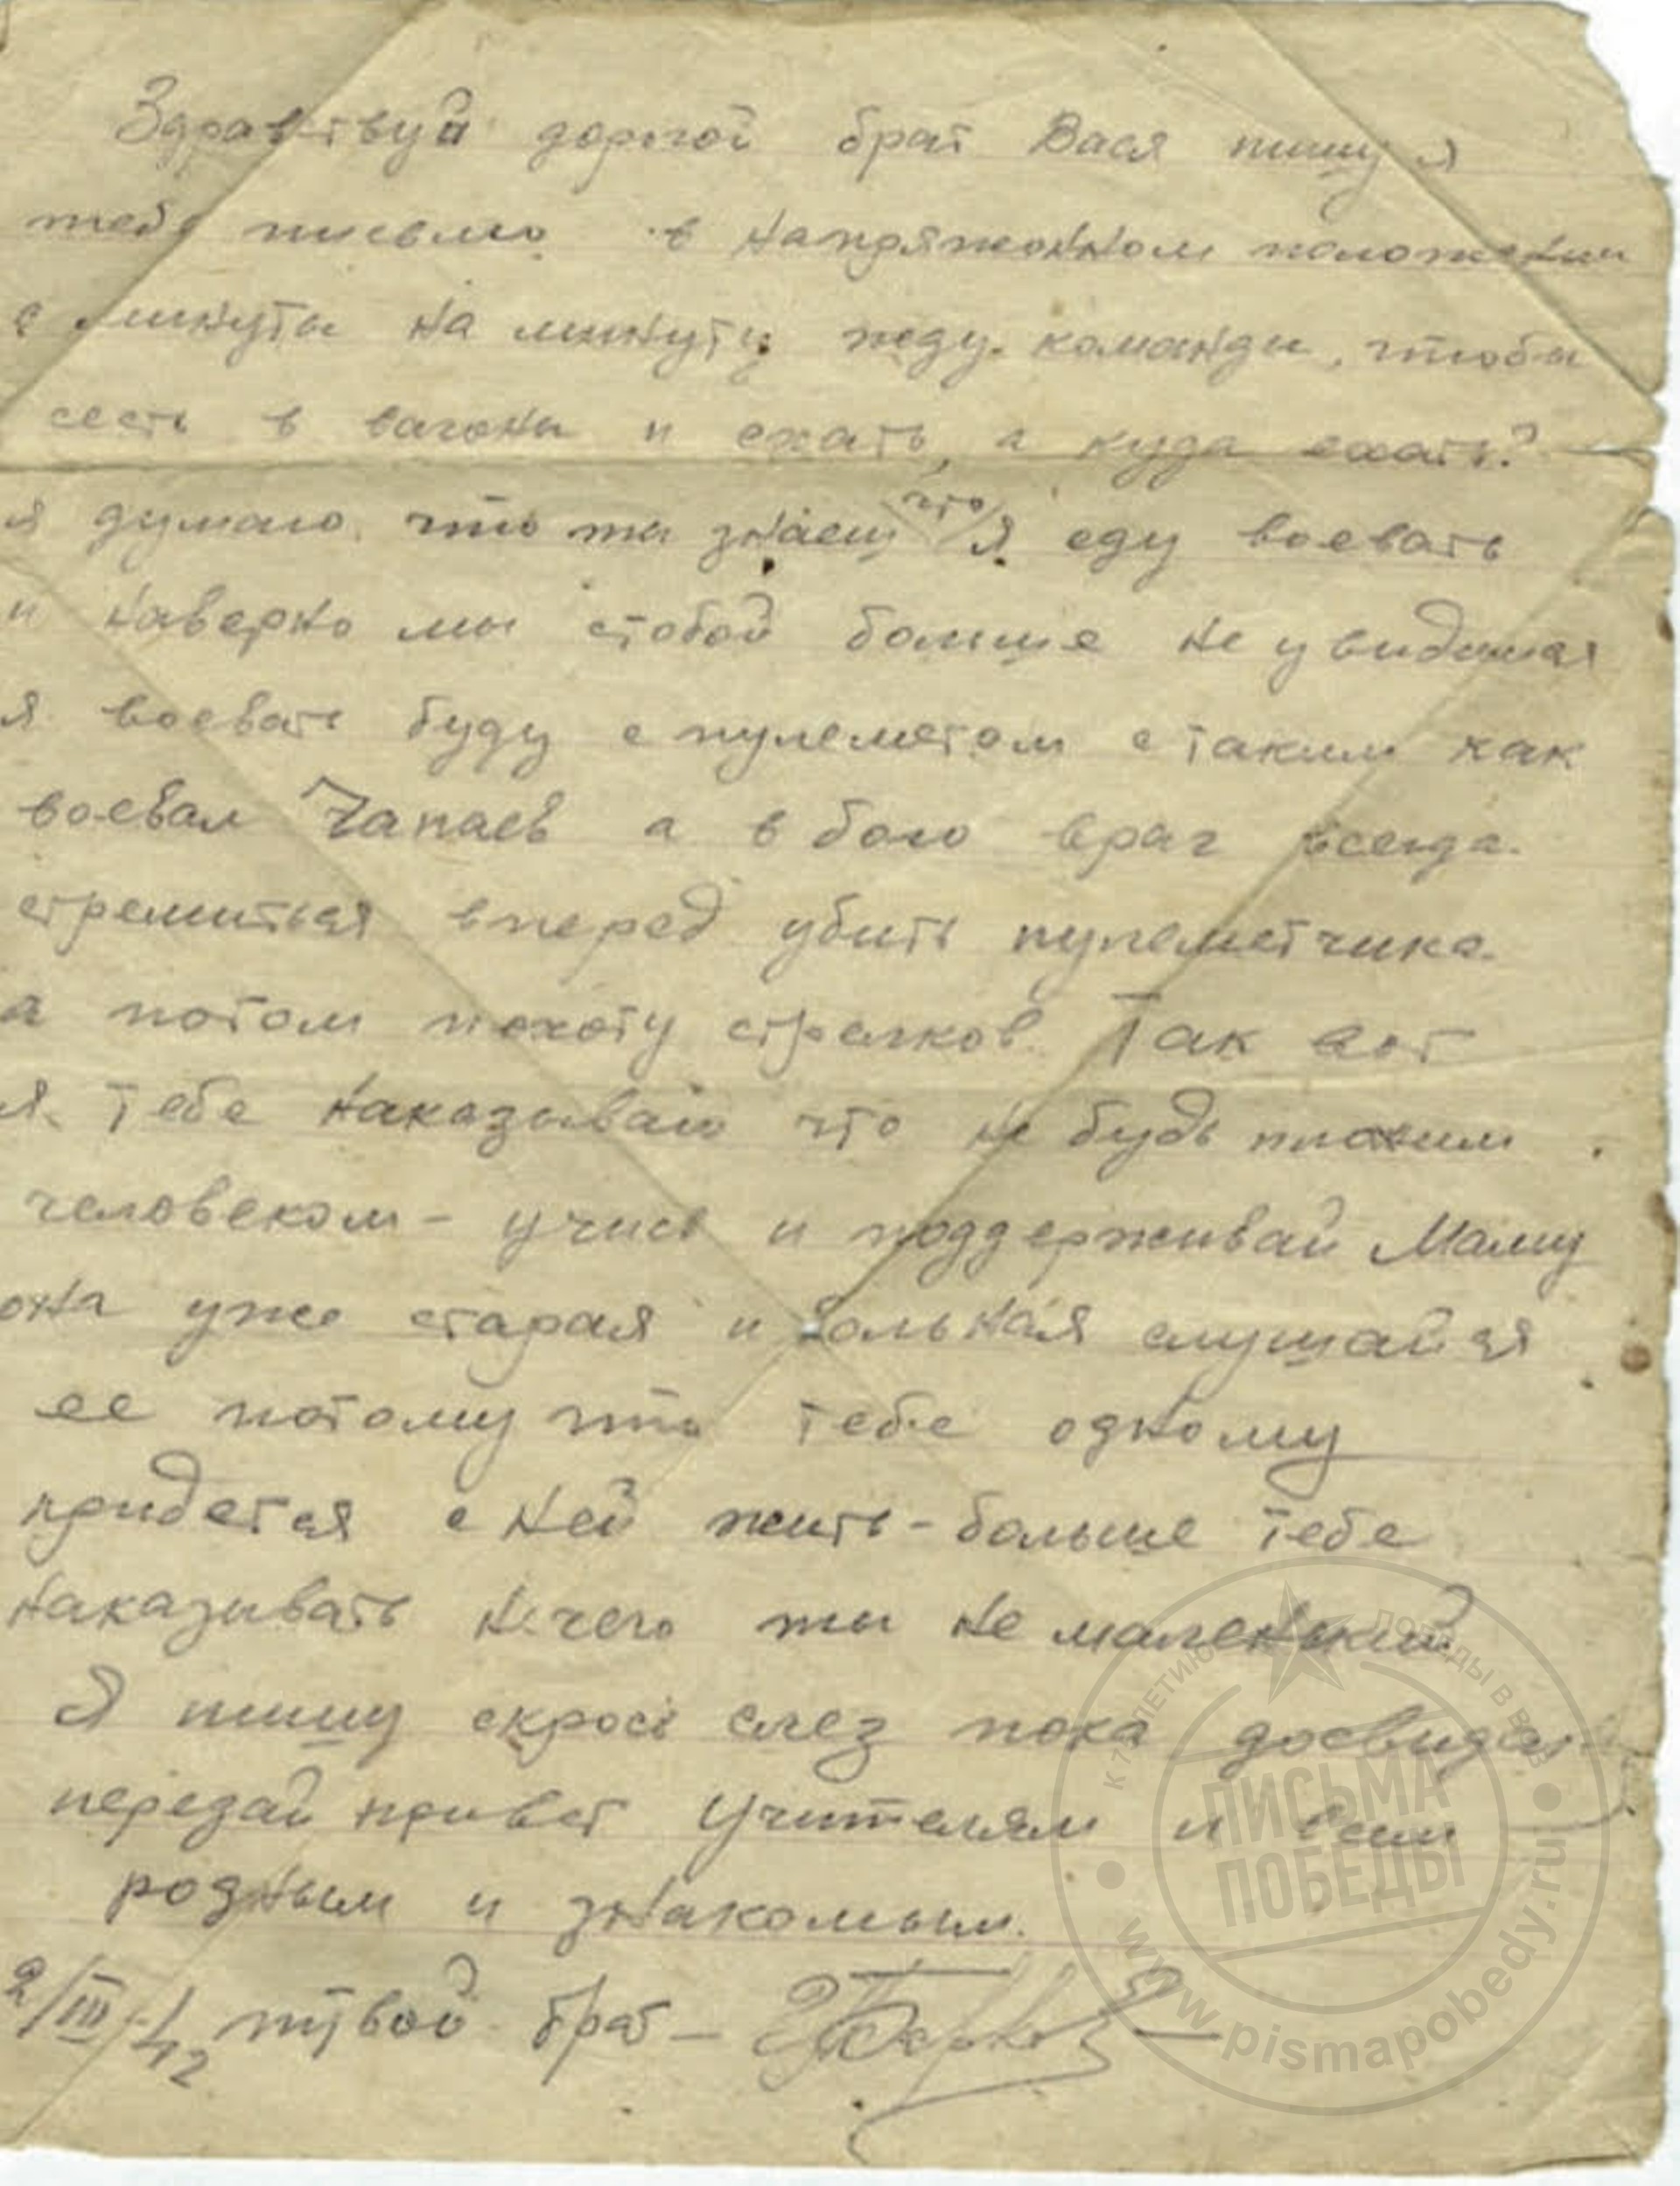 Здравствуй дорогой брат Вася пишу я
тебе письмо в напряжонном положении
с минуты на минуту жду команды, чтобы
сесть в вагоны и ехать, а куда ехать?
я думаю что ты знаеш что я еду воевать
и наверно мы стобой больше не увидимся
я воевать буду с пулеметом с таким как
воевал Чапаев а в бою враг всегда
стремиться вперед убить пулеметчика
а потом пехоту стрелков. Так вот
я тебе наказываю что не будь плохим
человеком - учись и поддерживай Маму
она уже старая и больная слушайся
ее потому что тебе одному
придется с ней жить - больше тебе
наказывать нечего ты не маленький
Я пишу скрось слез пока досвидан
передай привет Учителям и всем
родным и знакомым.
2/III-42 твой брат —
К 75-ЛЕТИЮ ПОБЕДЫ В ВОВ
ПИСЬМА
ПОБЕДЫ
www.pismapobedy.ru